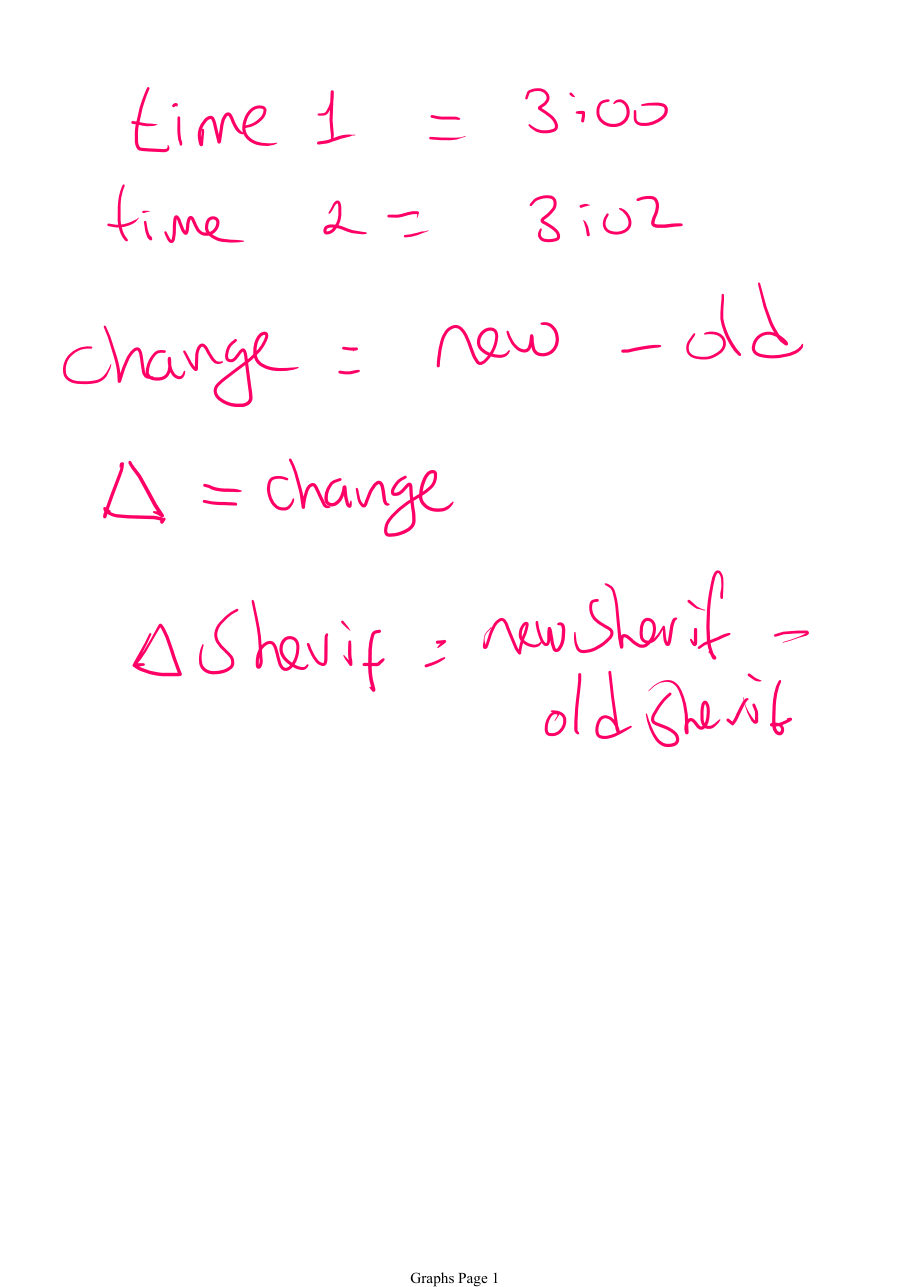 time 1 = 3:00
time 2 = 3:02
change = new - old
Δ = change
Δ Sherif = new Sherif -
old Sherif
Graphs Page 1